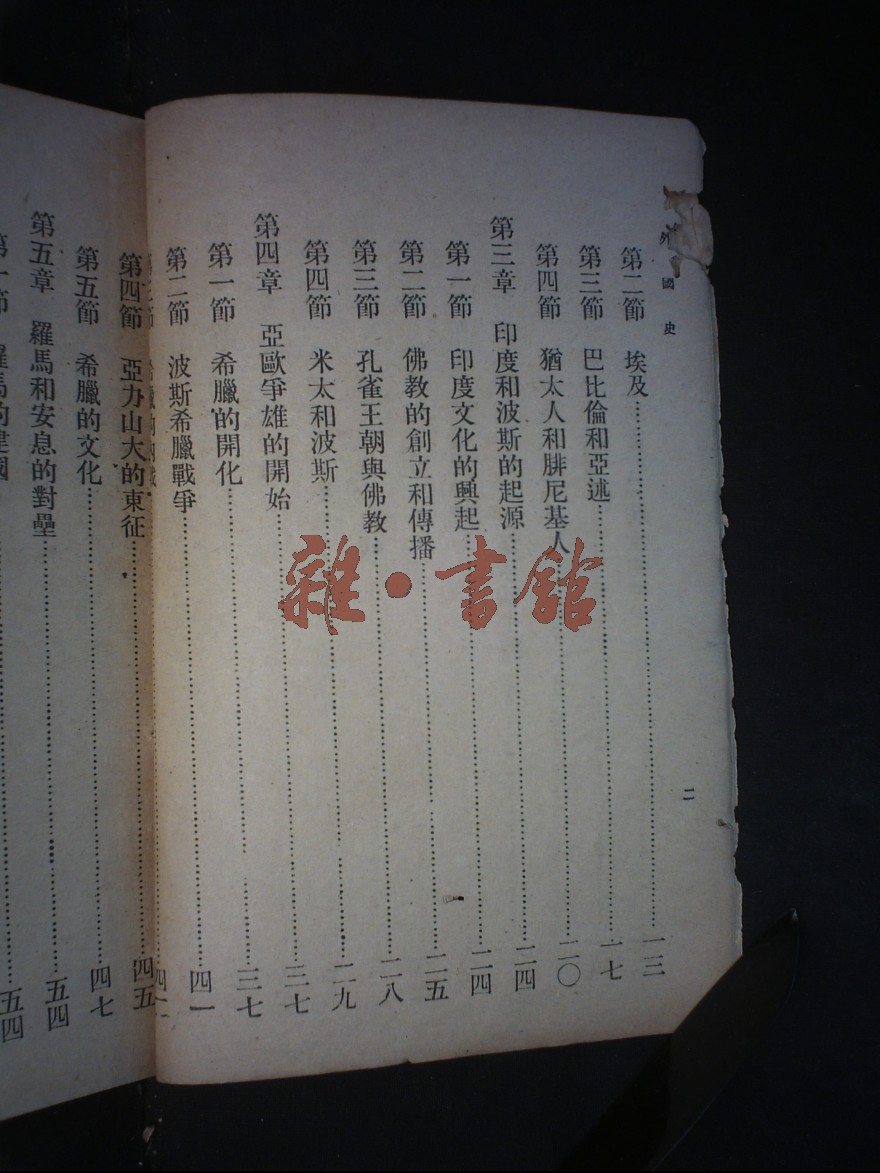 外國史
二
第二節 埃及……一三
第三節 巴比倫和亞述……一七
第四節 猶太人和腓尼基人……二〇
第三章 印度和波斯的起源……二四
第一節 印度文化的興起……二四
第二節 佛教的創立和傳播……二五
第三節 孔雀王朝與佛教……二八
第四節 米太和波斯……二九
第四章 亞歐爭雄的開始……三七
第一節 希臘的開化……三七
第二節 波斯希臘戰爭……四一
第四節 亞力山大的東征……四五
第五節 希臘的文化……四七
第五章 羅馬和安息的對壘……五四
第一節 羅馬的建國……五四
雜·書館